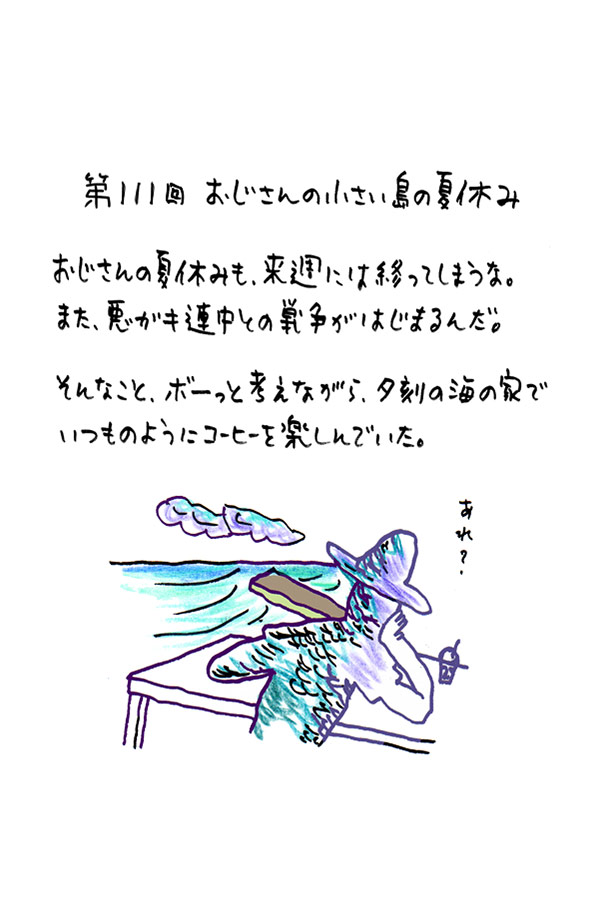 第111回 おじさんの小さい島の夏休み
おじさんの夏休みも、来週には終ってしまうな。
また、悪ガキ連中との戦争がはじまるんだ。
そんなこと、ボーっと考えながら、夕刻の海の家で
いつものようにコーヒーを楽しんでいた。
あれ?